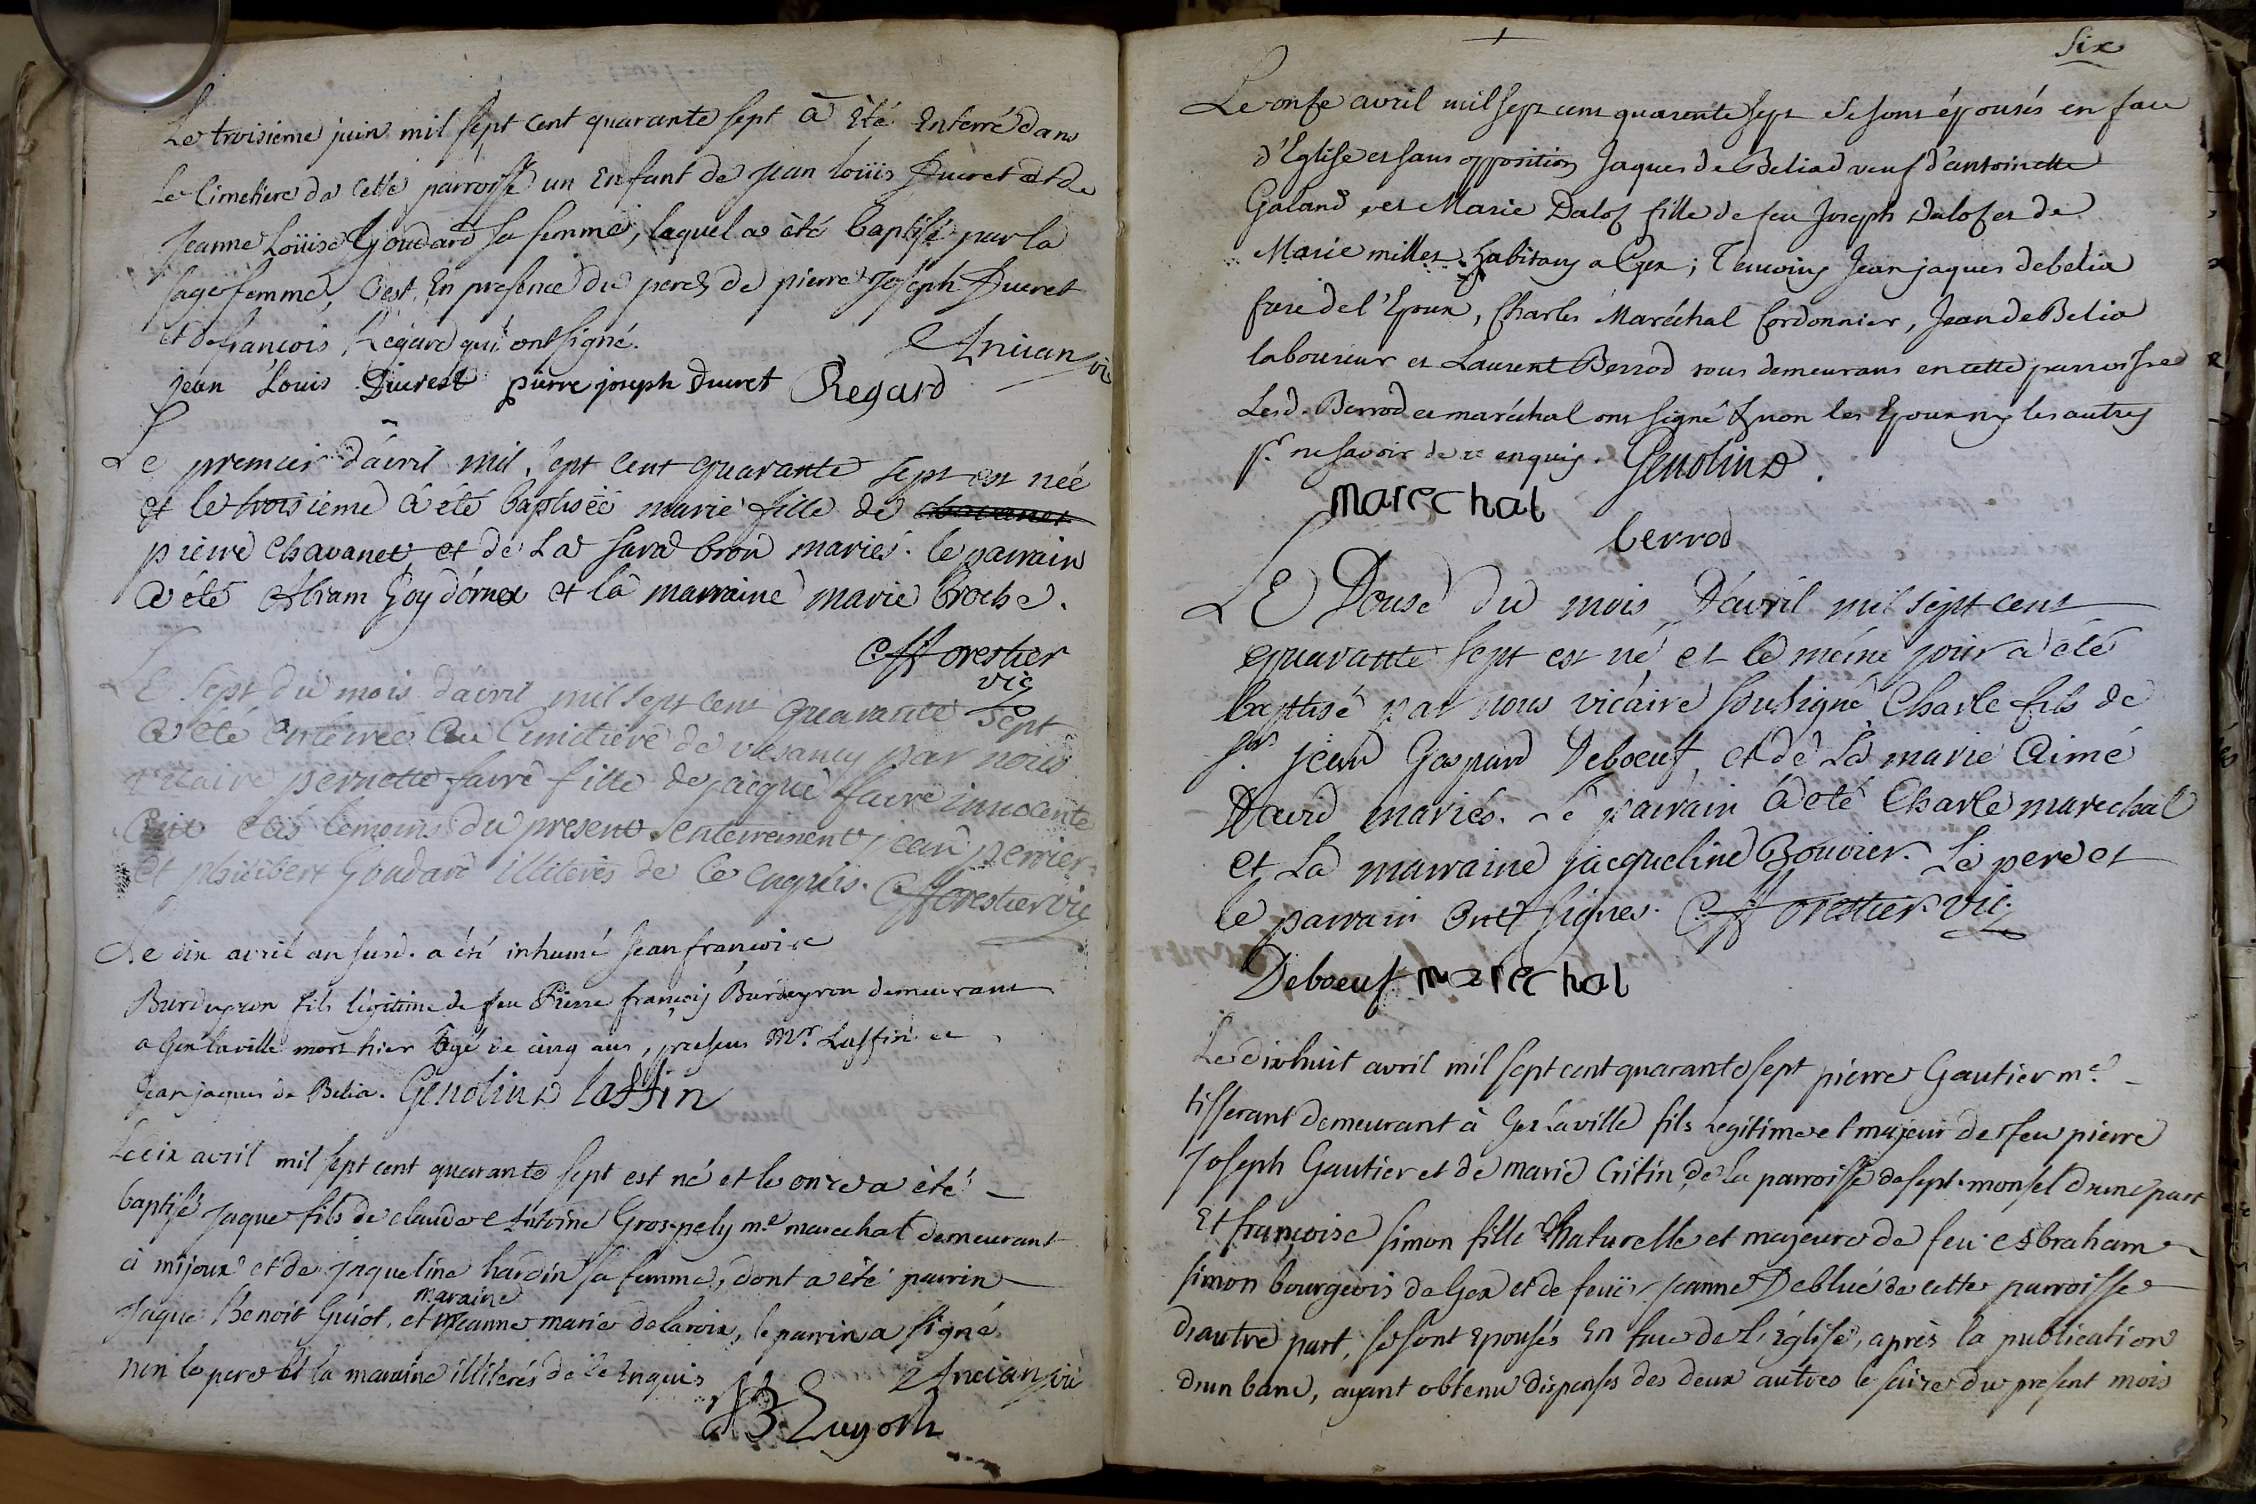 Le troisieme juin mil sept cent quarante sept à été enterré dans
le cimetiere de cette parroisse un enfant de jean loüis Ducret et de
jeanne Loüise Goudard sa femme, lequel a été baptisé par la
sage femme, C'est En presence du pere, de pierre joseph Ducret
et de francois Regard qui ont signé.
Ancian vic
jean Louis Ducrest pierre joseph Ducret Regard
Le premier d'avril mil sept cent quarante sept est née
et le troisieme à été baptisée marie fille de
pierre Chavanet et de La Sara bron mariés. le parrain
a été Abram Goy d'ornex et la marraine marie broche.
Forestier
vic
Le sept du mois d'avril mil sept cent quarante sept
a été enterrée au Cimitiere de vesancy par nous
vicaire pernette favre fille de jacque favre innocente
ont etés temoins du present enterrement jean perrier
et philibert Goudard illiterés de ce enquis. Forestier vic
Le dix avril an susd. a été inhumé Jean françois
Burdeyron fils légitime de feu Pierre françois Burdeyron demeurant
a Gex la ville mort hier agé de cinq ans, presens Mr. Lassin et
Jean jaques de Belia. Genolin Lassin
Le dix avril mil sept cent quarante sept est né et le onze a été
baptisé jaque fils de claude Antoine Grospely me. marechal demeurant
à mijoux et de jaqueline hardin sa femme, dont a été parrin
maraine
jaque Benoit Guiot, et jeanne marie delacroix, le parrin a signé
non le pere et la maraine illiterés de ce enquis
Ancian vic
JB Guyot
Six
Le onse avril mil sept cent quarante sept se sont épousés en face
d'Eglise et sans opposition Jaques de Beliad veuf d'antoinette
Galand, et Marie Dalos fille de feu Joseph Dalos et de
Marie millet habitans a Gex; Temoins Jean jaques debelia
frere de l'Epoux, Charles Maréchal Cordonnier, Jean de Belia
laboureur et Laurent Berrod tous demeurans en cette parroisse
Lesd. Berrod et maréchal ont signé & non les Epoux ny les autres
pr. ne savoir de ce enquis. Genolin
marechal
berrod
LE Douse du mois D'avril mil sept cent
quarante sept est né et le méme jour a été
baptisé par nous vicaire sousigné Charle fils de
Sr. jean Gaspard Deboeuf, et de La marie Aimé
David mariés. Le parrain à été Charle marechal
et La marraine jacqueline Bouvier. Le pere et
le parrain ont signés. Forestier vic
Deboeuf marechal
Le dixhuit avril mil sept cent quarante sept pierre Gautier me.
tisserant demeurant à Gex la ville fils legitime et majeur de feu pierre
joseph Gautier et de marie Critin de la parroisse de sept-monsel d'une part
Et françoise simon fille naturelle et majeure de feu Abraham
simon bourgeois de Gex et de feüe jeanne Deblué de cette parroisse
d'autre part, se sont epousés En face de l'Eglise, après la publication
d'un banc, ayant obtenu dispenses des deux autres le seize du present mois